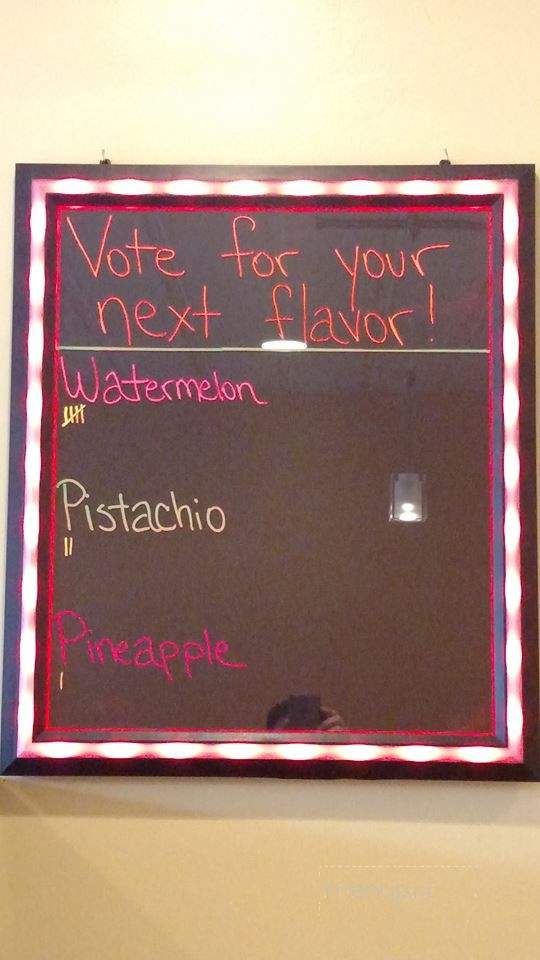 Vote for your
next flavor!
Watermelon
Pistachio
Pineapple